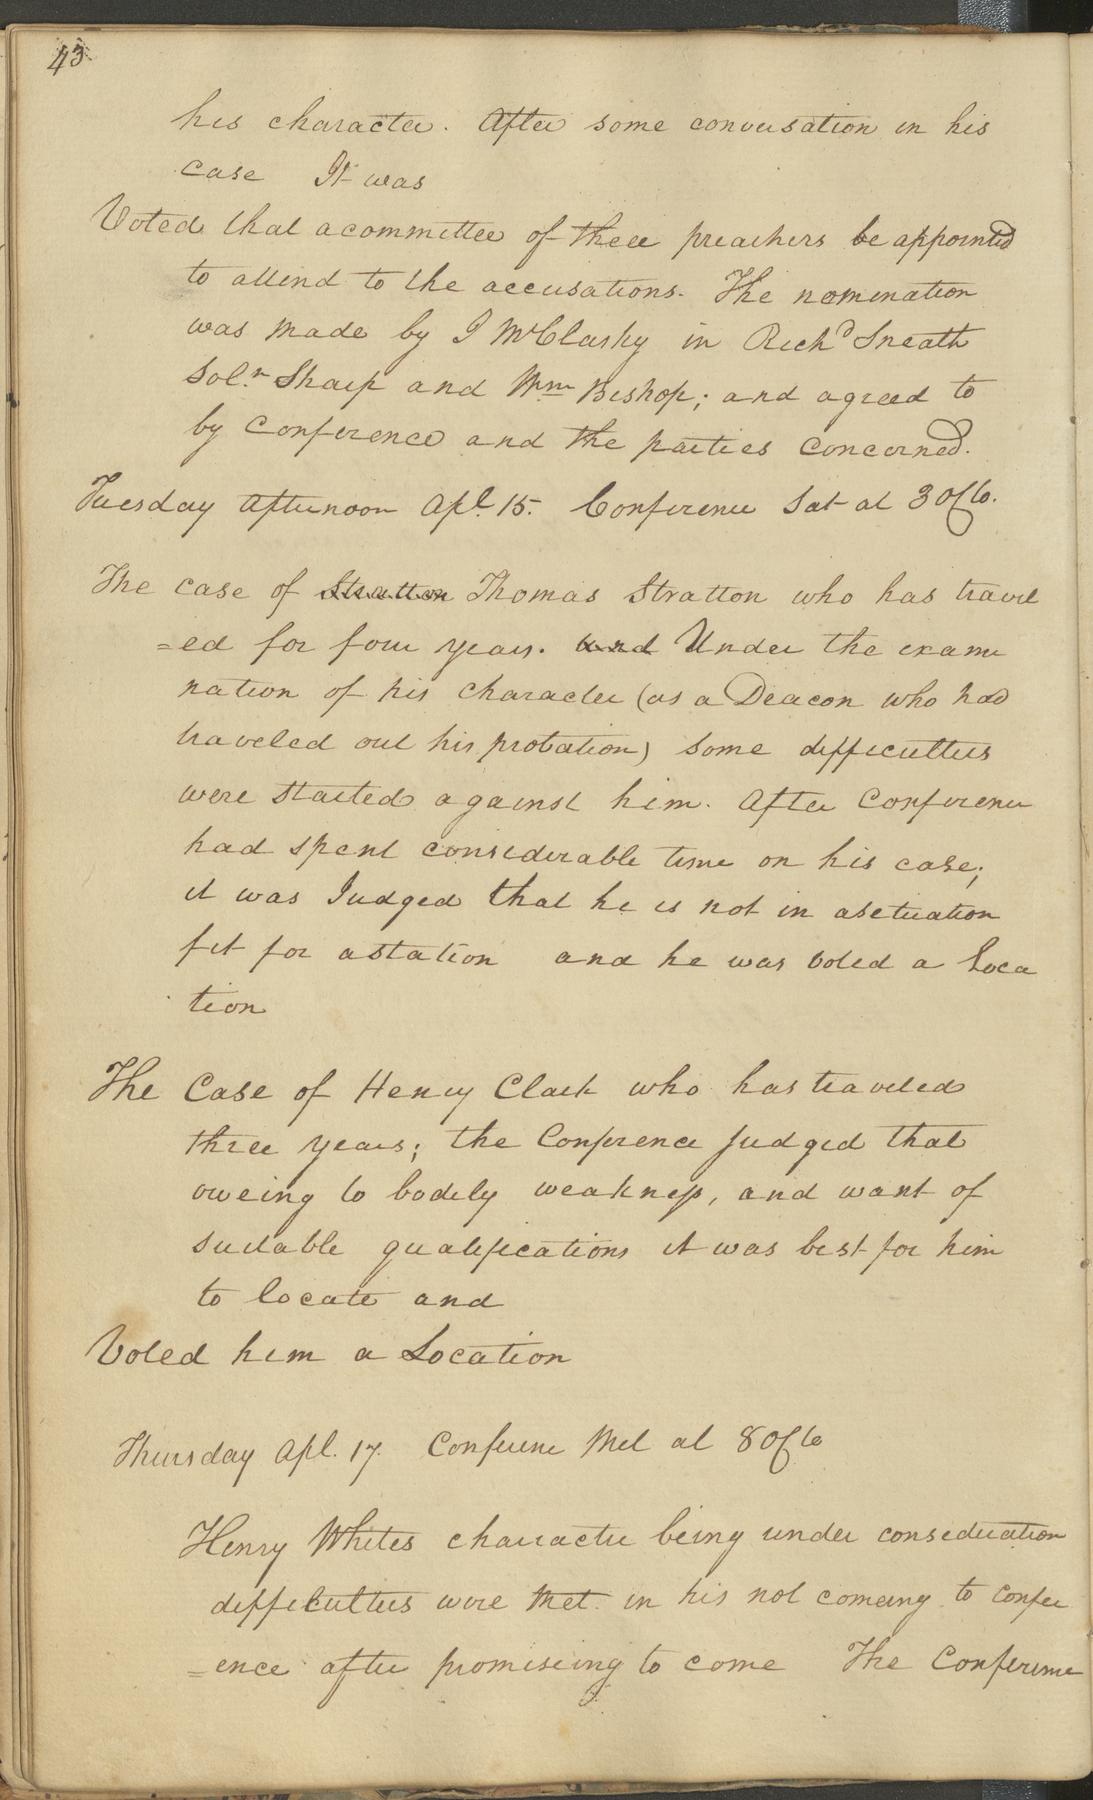 43
his character. After some conversation in his
case It was
Voted that a committee of three preachers be appointed
to attend to the accusations. The nomination
was made by J McClasky in Richd Sneath
Soln Sharp and Wm Bishop; and agreed to
by Conference and the parties concerned.
Tuesday afternoon Apl. 15. Conference Sat at 3 OClo.
The case of Stratton Thomas Stratton who has travel
=ed for four years. and Under the exami
nation of his character (as a Deacon who had
traveled out his probation) some difficulties
were started against him. After Conference
had spent considerable time on his case;
it was Judged that he is not in a setuation
fit for a station and he was voted a Loca
tion
The Case of Henry Clark who has traveled
three years; the Conference Judged that
oweing to bodily weakness, and want of
suitable qualifications it was best for him
to locate and
Voted him a Location
Thursday Apl. 17. Conference Met at 8 OClo
Henry Whites character being under consideration
difficulties were met in his not comeing to confer
=ence after promiseing to come The Conference